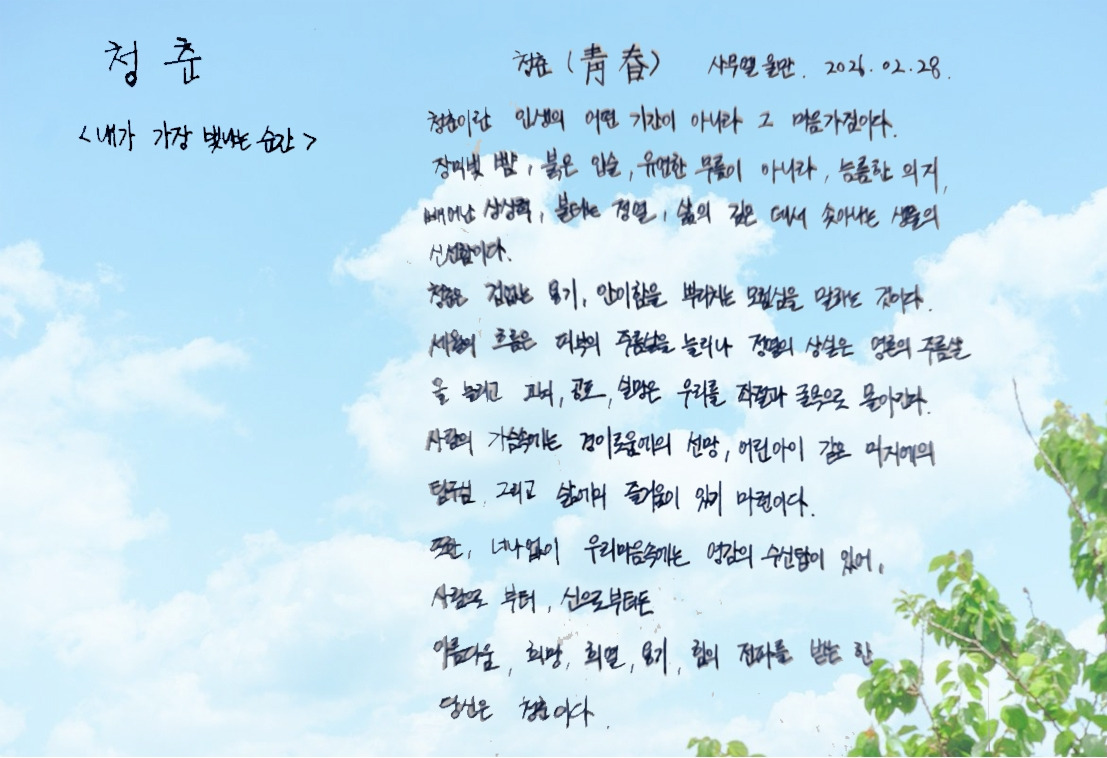 청춘
<내가 가장 빛나는 순간>
청춘 (靑春) 사무엘 울만. 2026.02.28.
청춘이란 인생의 어떤 기간이 아니라 그 마음가짐이다.
장밋빛 뺨, 붉은 입술, 유연한 무릎이 아니라, 늠름한 의지,
빼어난 상상력, 불타는 정열, 삶의 깊은 데서 솟아나는 샘물의
신선함이다.
청춘은 겁없는 용기, 안이함을 뿌리치는 모험심을 말하는 것이다.
세월의 흐름은 피부의 주름살을 늘리나 정열의 상실은 영혼의 주름살
을 늘리고 고뇌, 공포, 실망은 우리를 좌절과 굴욕으로 몰아간다.
사람의 가슴속에는 경이로움에의 선망, 어린아이 같은 미지에의
탐구심 그리고 삶에의 즐거움이 있기 마련이다.
또한, 너나없이 우리마음속에는 영감의 수신탑이 있어,
사람으로 부터, 신으로부터든
아름다움, 희망, 희열, 용기, 힘의 전파를 받는 한
당신은 청춘이다.